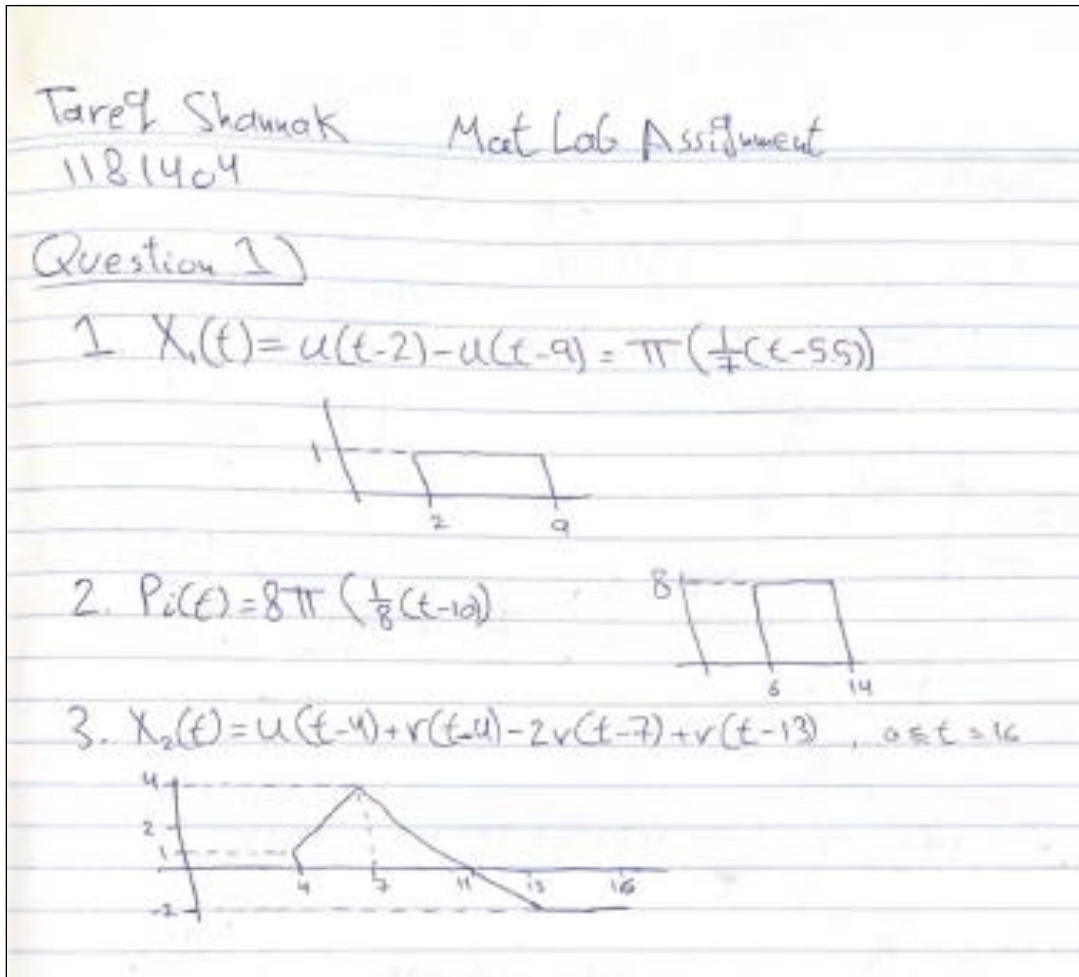 Tareq Shannak Mat Lab Assignment
1181404
Question 1)
1. X₁(t) = u(t-2) - u(t-9) = π(1/7(t-5.5))
1
2 9
2. Pi(t) = 8π(1/8(t-10))
8
6 14
3. X₂(t) = u(t-4) + r(t-4) - 2r(t-7) + r(t-13) , 0≤t≤16
4
2
1
4 7 11 13 16
-2